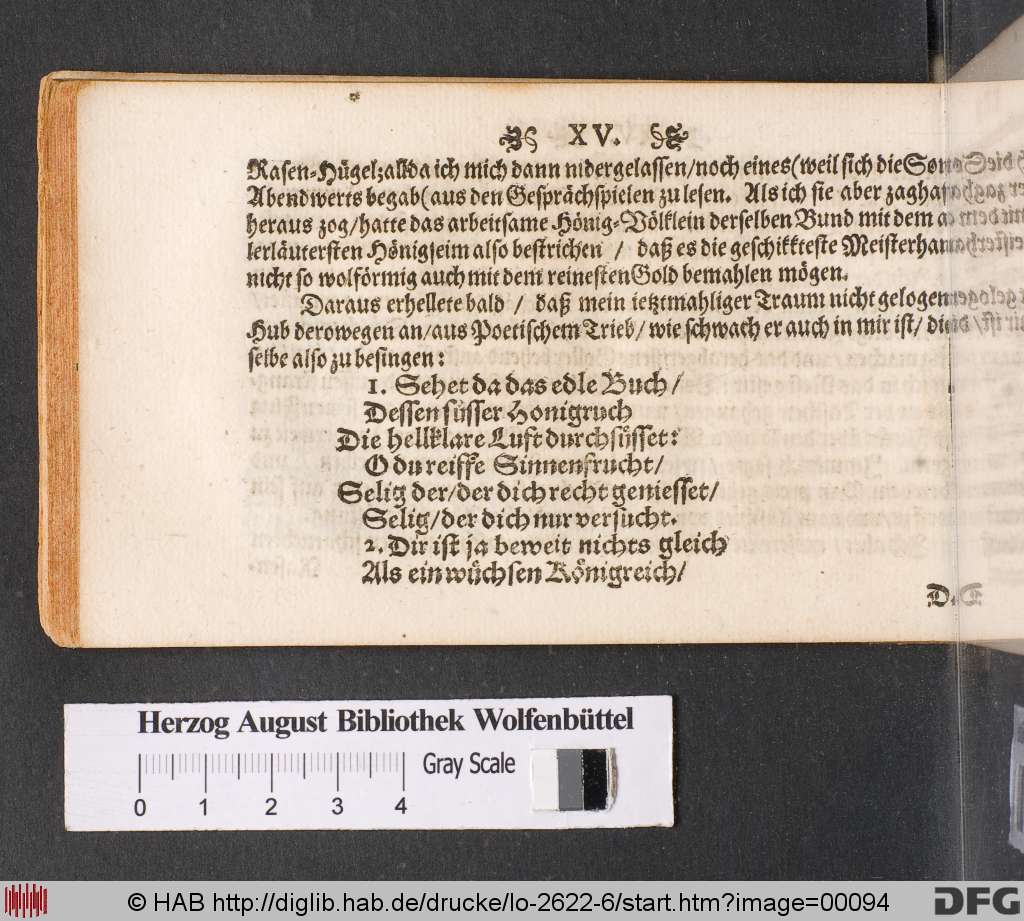 XV.
Rasen-Hügel; allda ich mich dann nidergelassen/ noch eines (weil sich die
Abendwerts begab( aus den Gesprächspielen zu lesen. Als ich sie aber zaghaft
heraus zog/ hatte das arbeitsame Hönig-Völklein derselben Bund mit dem
lerläutersten Hönigseim also bestrichen / daß es die geschikkteste Meisterhand
nicht so wolförmig auch mit dem reinesten Gold bemahlen mögen.
Daraus erhellete bald / daß mein ietztmahliger Traum nicht gelogen
Hub derowegen an/ aus Poetischem Trieb/ wie schwach er auch in mir ist/ die-
selbe also zu besingen:
1. Sehet da das edle Buch/
Dessen süsser Honigruch
Die hellklare Luft durchsüsset:
O du reiffe Sinnenfrucht/
Selig der/ der dich recht geniesset/
Selig/ der dich nur versucht.
2. Dir ist ja beweit nichts gleich
Als ein wüchsen Königreich/
Herzog August Bibliothek Wolfenbüttel
Gray Scale
0 1 2 3 4
© HAB http://diglib.hab.de/drucke/lo-2622-6/start.htm?image=00094
DFG